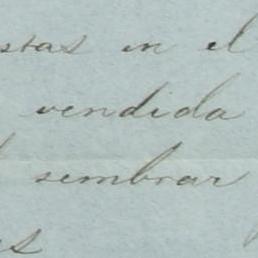 stas en el
vendida
sembrar